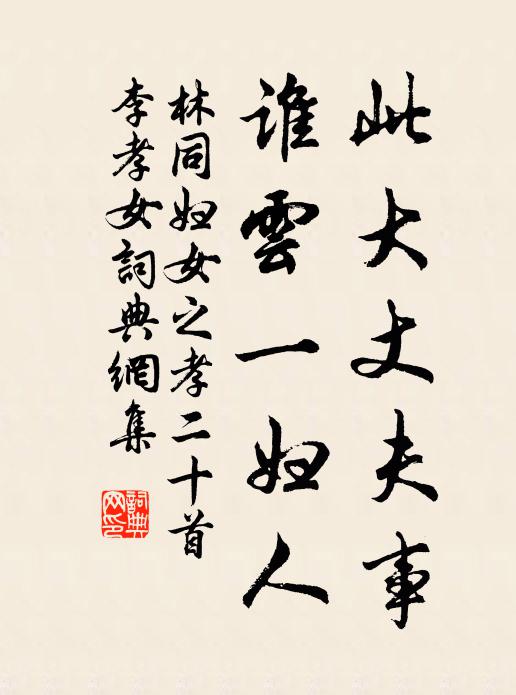 此大丈夫事
誰雲一妇人
林同妇女之孝二十首
李孝女詞典網集
詞典網印